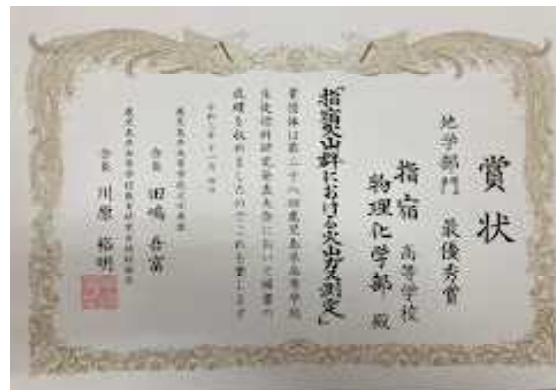 賞状
地学部門 最優秀賞
指宿 高等学校
物理化学部 殿
「指宿火山群における火山ガス測定」
貴団体は第二十八回鹿児島県高等学校
生徒理科研究発表大会において頭書の
成績を収めましたのでこれを賞します
会長 田嶋 吾富
会長 川原 裕明